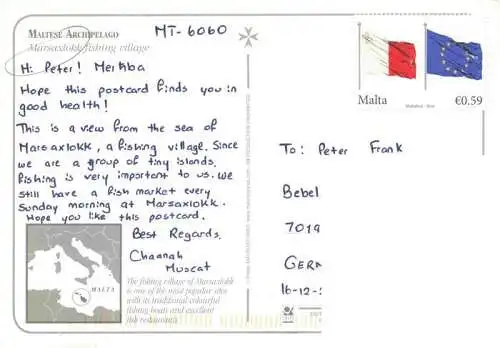 MALTESE ARCHIPELAGO
Marsaxlokk fishing village
MT-6060
Hi Peter! Merħba
Hope this postcard finds you in
good health!
This is a view from the sea of
Marsaxlokk, a fishing village. Since
we are a group of tiny islands,
fishing is very important to us. We
still have a fish market every
Sunday morning at Marsaxlokk.
Hope you like this postcard.
Best Regards,
Chaanah
Muscat
MALTA
The fishing village of Marsaxlokk
is one of the most popular sites
with its traditional colourful
fishing boats and excellent
fish restaurants.
Malta
€0.59
To: Peter Frank
Bebel
7019
GERA
16-12-